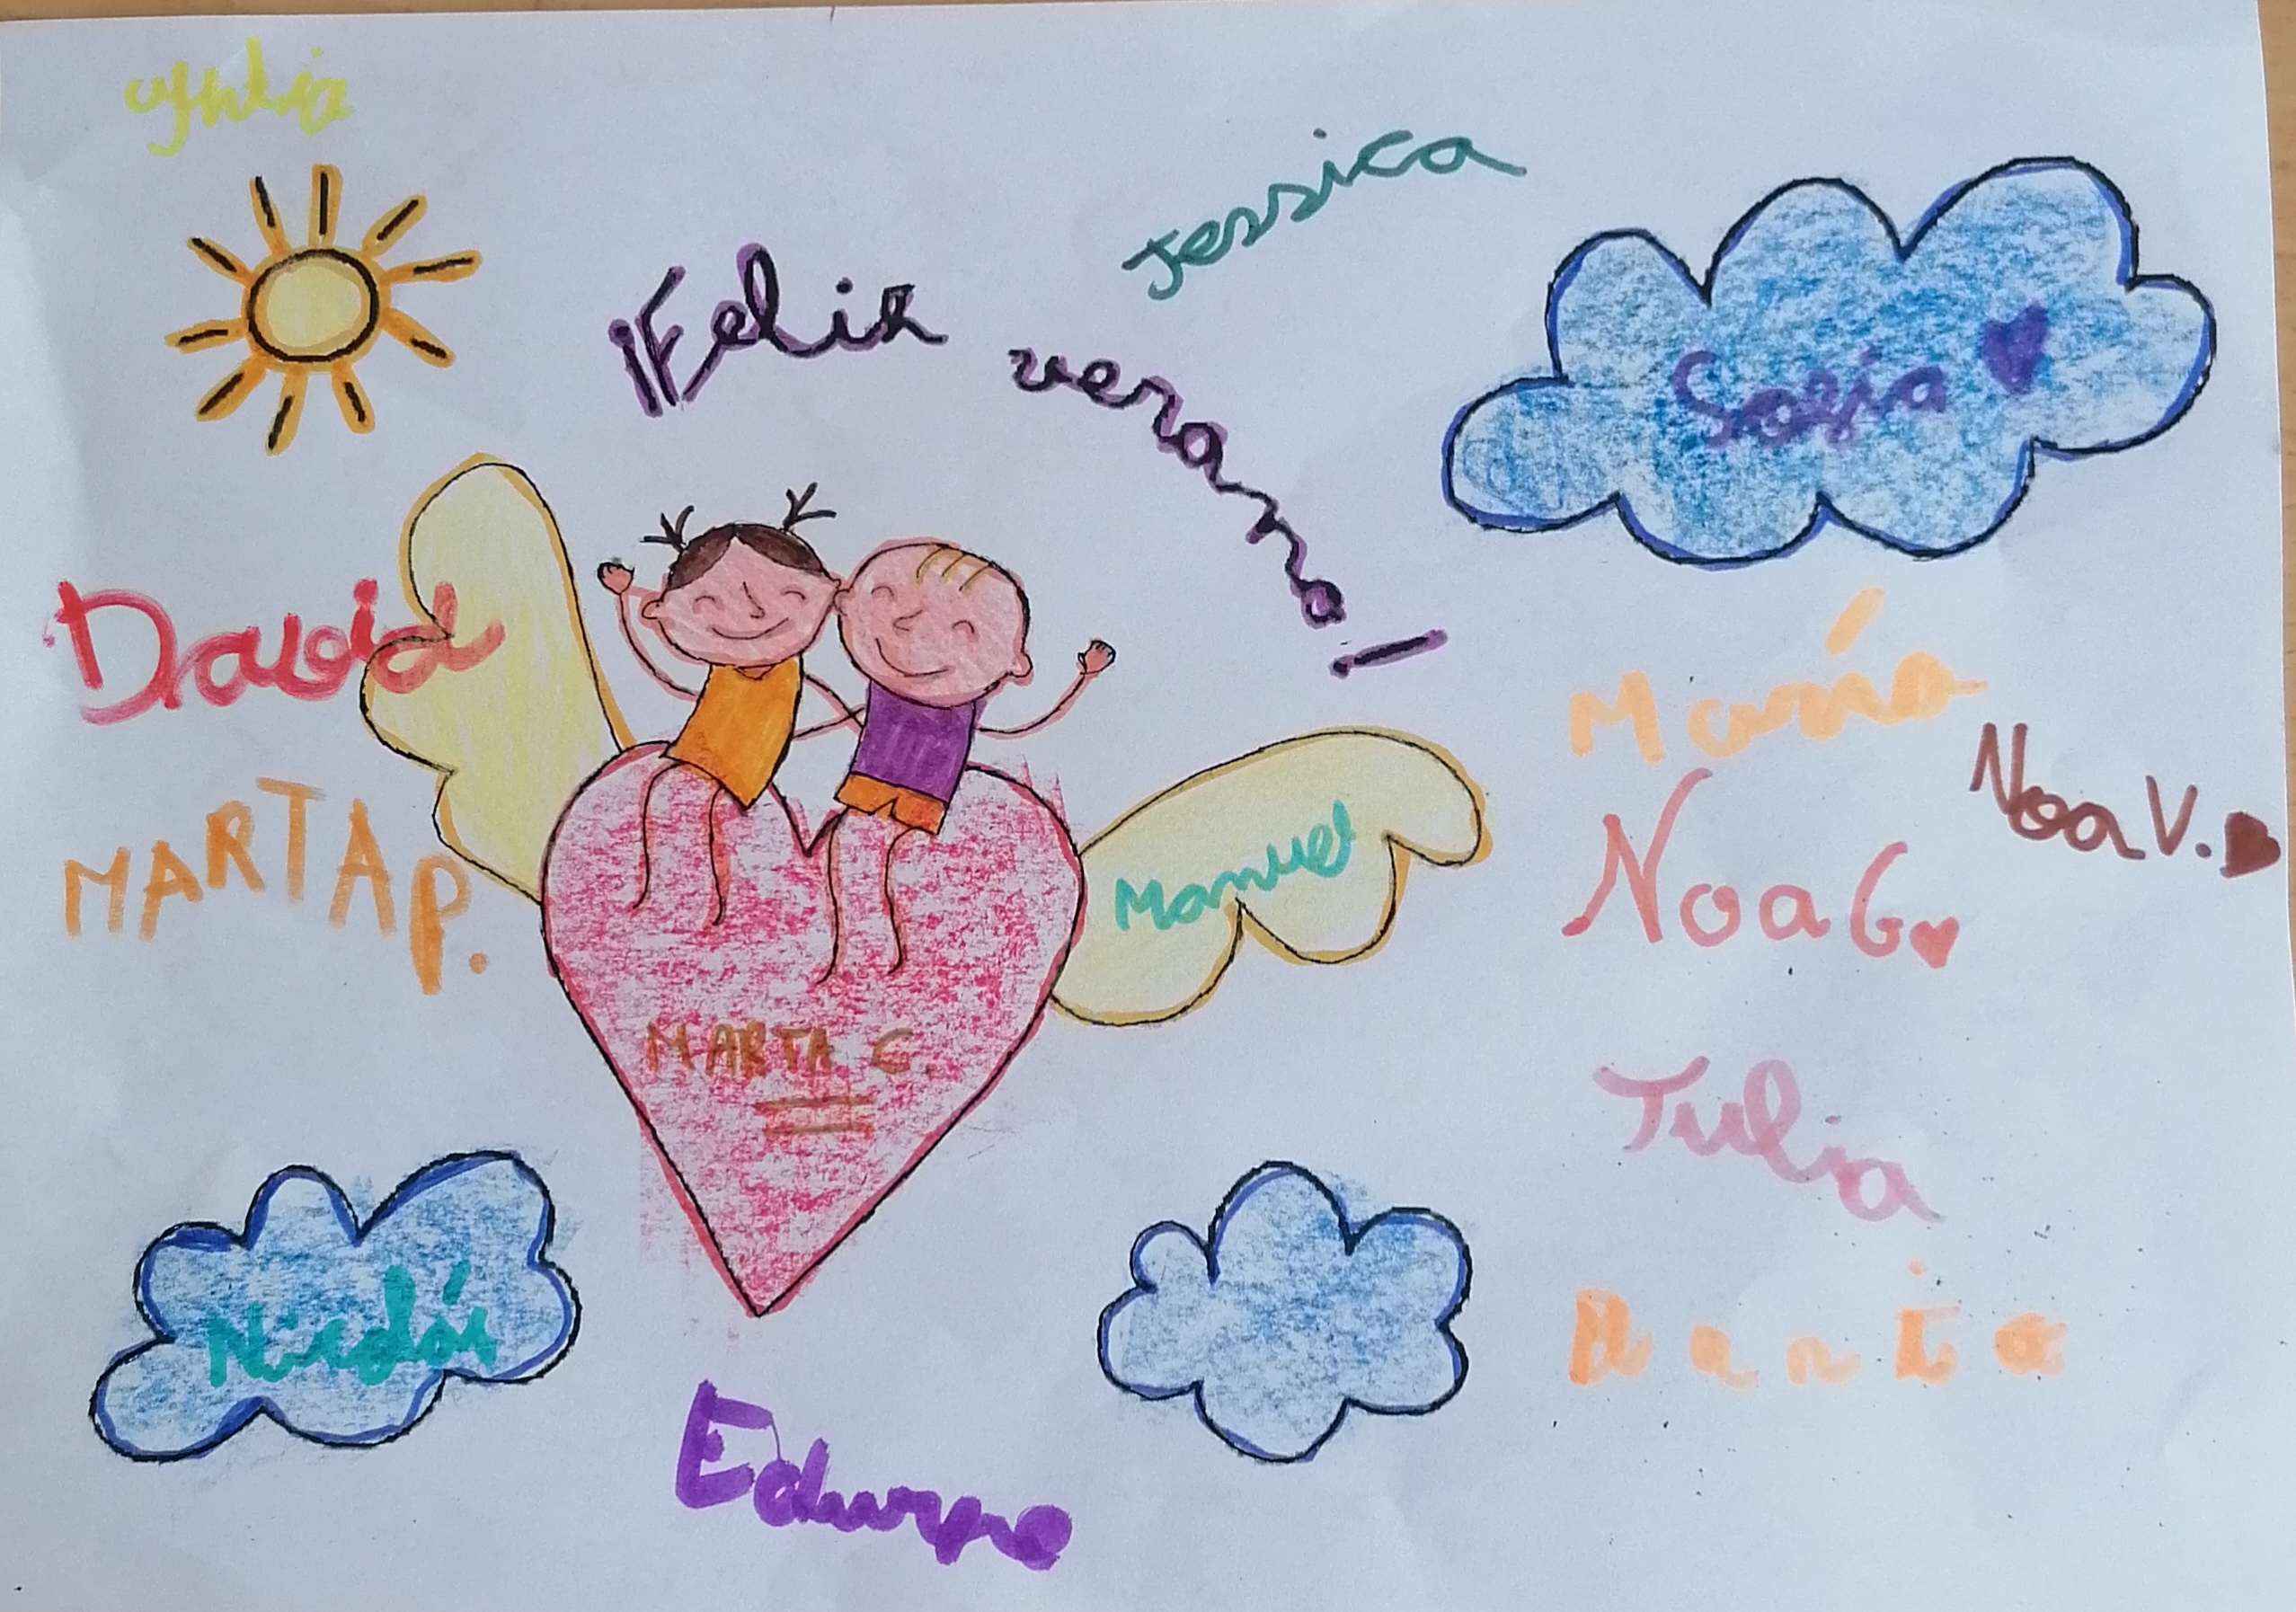 Jessica
¡Feliz verano!
Sofía
David
María
Noa V.
MARTA P.
Manuel
Noa G
MARTA C.
Julia
Nicolás
Edurne